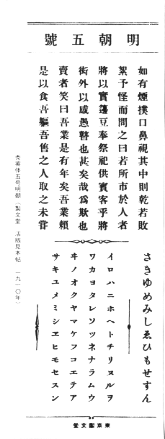 明朝五號
如有煙撲口鼻視其中則乾若敗
絮予怪而問之曰若所市於人者
將以實籩豆奉祭祀供賓客乎將
衒外以惑愚瞽也甚矣哉爲欺也
賣者笑曰吾業是有年矣吾業賴
是以食吾軀吾售之人取之未嘗
さきゆめみしゑひもせすん
イロハニホヘトチリヌルヲ
ワカヨタレソツネナラムウ
ヰノオクヤマケフコエテア
サキユメミシヱヒモセスン
東京製文堂